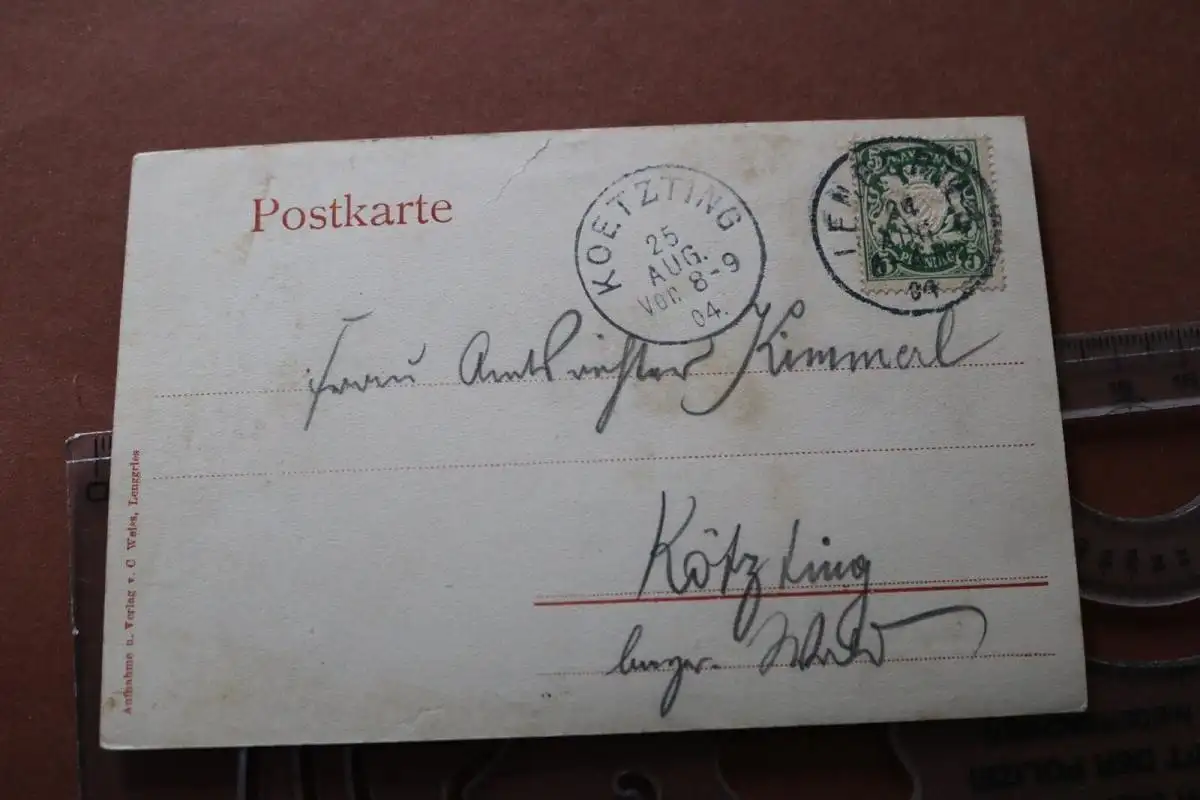 Postkarte
KOETZTING
25
AUG.
Vor 8-9
04.
5 BAYERN 5
24
04
5 PFENNIG 5
Frau Amtsrichter Kimmerl
Kötzting
bayer. Wald
Aufnahme u. Verlag v. C Weiss, Lenggries